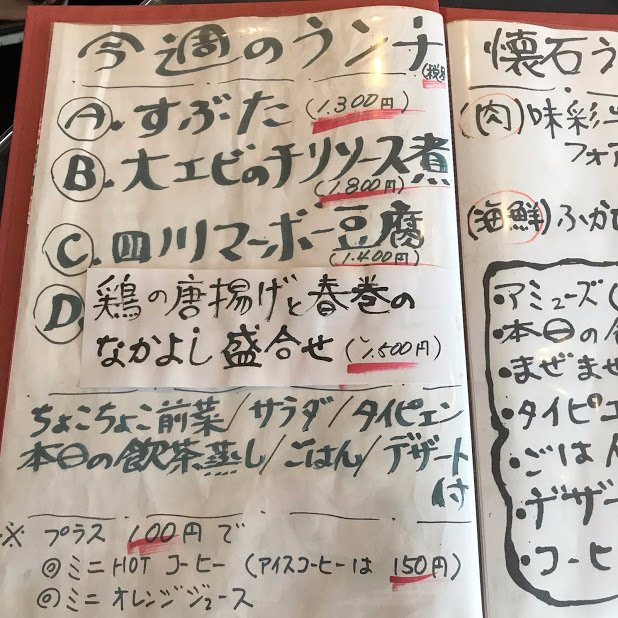 今週のランチ
(税別
A. すぶた (1.300円)
B. 大エビのチリソース煮
(1.800円)
C. 四川マーボー豆腐
(1.400円)
D.
鶏の唐揚げと春巻の
なかよし盛合せ (1.500円)
ちょこちょこ前菜/サラダ/タイピェン
本日の飲茶蒸し/ごはん/デザート
付
※ プラス 100円で
◎ミニ HOT コーヒー (アイスコーヒーは 150円)
◎ミニ オレンジジュース
懐石
(肉) 味彩
フォア
(海鮮) ふかひ
・アミューズ(
・本日の
・まぜまぜ
・タイピエ
・ごはん
・デザー
・コーヒ